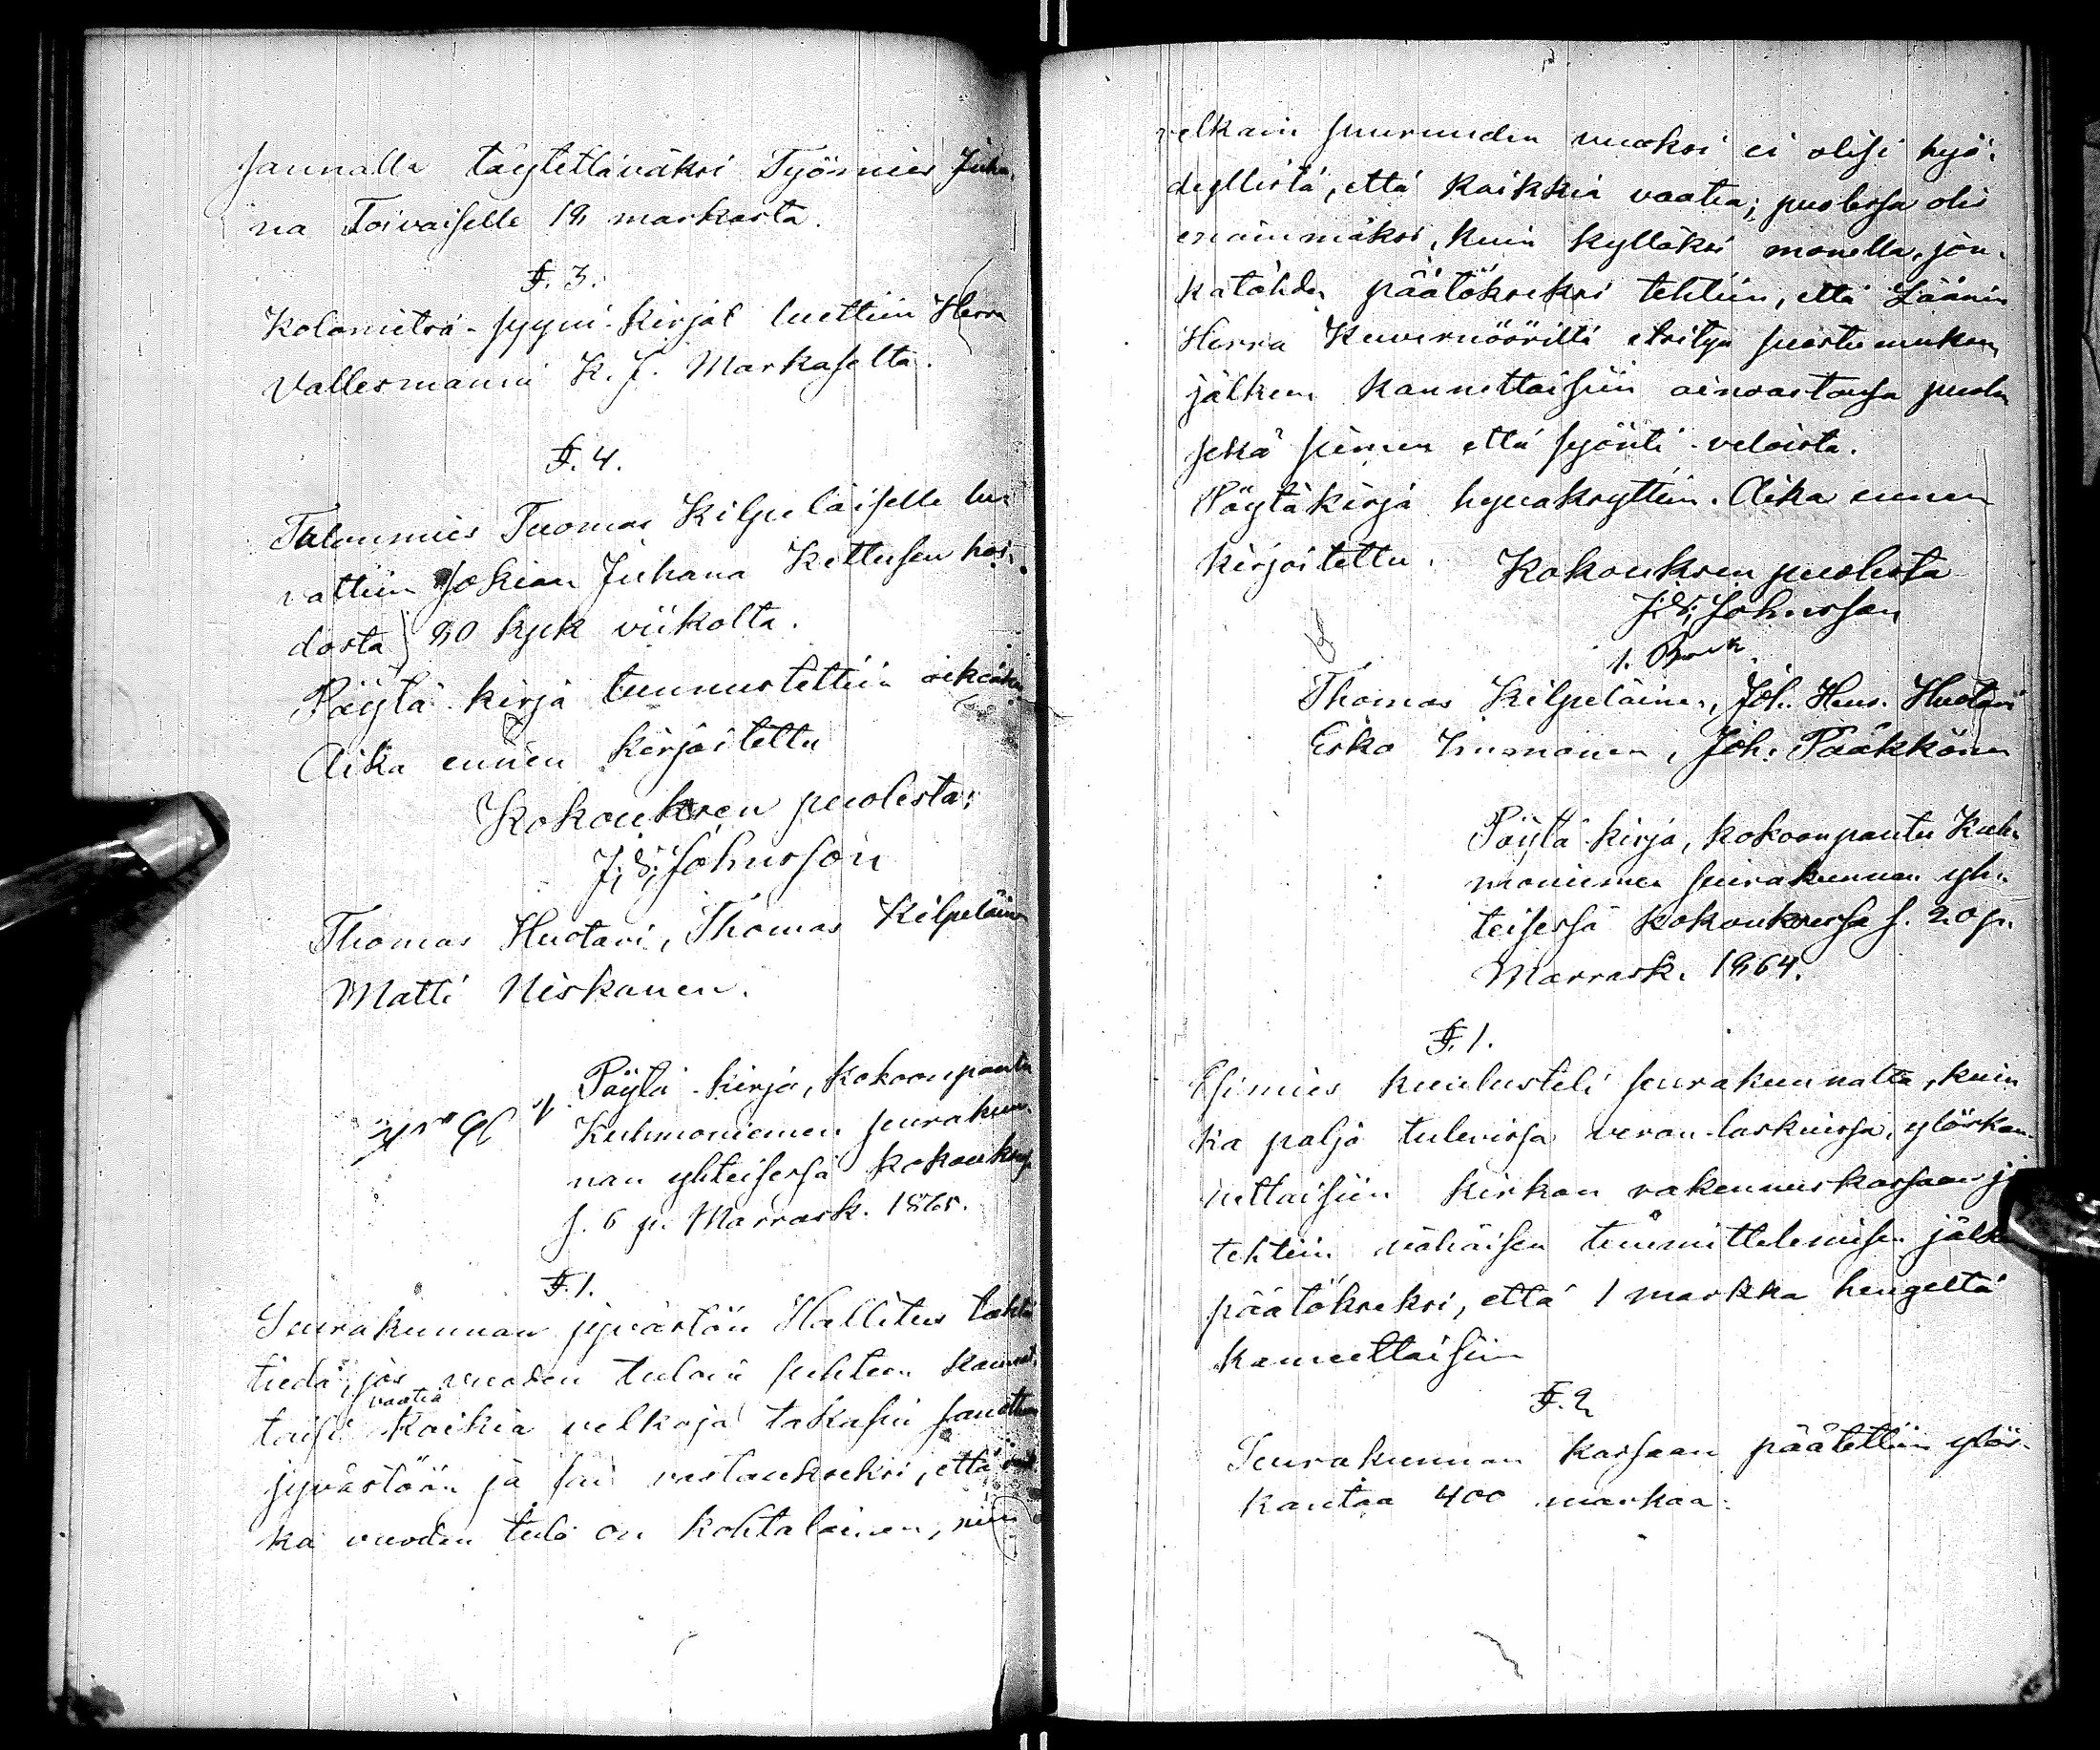 saunalla täytettäväksi Työmies Juha-
na Toivaiselle 18 markasta.
§. 3.
Kolomitsä-syyni-kirjat luettiin Herra
Vallesmanni K. J. Markaselta.
§. 4.
Talonmies Tuomas Kilpeläiselle lu-
vattiin Jokian Juhana Kettusen hoi-
dosta 80 kpk viikolta.
Pöytä-kirja tunnustettiin oikiaksi
Aika ennen kirjoitettu
Kokouksen puolesta:
J. S. Johnsson
Thomas Huotari, Thomas Kilpeläinen
Matti Niskanen.
Pöytä-kirja, kokoonpantu
Kuhmoniemen seurakun-
nan yhteisessä kokouksess
s. 6 p. Marrask. 1865.
§. 1.
Seurakunnan jyvästön Hallitus tahto
tiedä, jos vuoden tulon suhteen kannat-
vaatia
taisi kaikia velkoja takasin sanottuu
jyvästöön ja sai vastaukseksi, että vaik-
ka vuoden tulo on kohtalainen, niin
velkain suuruuden vuoksi ei olisi hyö-
dyllistä, että kaikkia vaatia; puolessa olis
enämmäksi, kuin kylläksi monella, jon-
katähden päätökseksi tehtiin, että Läänin
Herra Kuvernööriltä etsityn suostumuksen
jälkeen kannettaisiin ainoastansa puolen
sekä siemen että syönti-veloista.
Pöytäkirja hyväksyttiin. Aika ennen
kirjoitettu. Kokouksen puolesta
J. S. Johnsson
Thomas Kilpeläinen, Joh. Henr. Huotari
Esko Immonen, Joh: Pääkkönen
Pöytä-kirja, kokoonpantu Kuh-
moniemen seurakunnan yh-
teisessä kokouksessa s. 20 p.
Marrask. 1864.
§. 1.
Esimies kuulusteli seurakunnalta, kuin
ka paljo tulevissa veron-laskuissa, ylöskan-
nettaisiin kirkon rakennuskassaan ja
tehtiin vähäisen tuumittelemisen jälkeen
päätökseksi, että 1 markka hengeltä
kannettaisiin
§. 2
Seurakunnan kassaan päätettiin ylös-
kantaa 400 markaa.